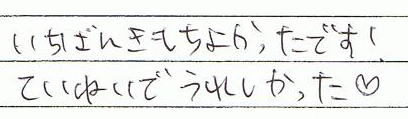 いちばんきもちよかったです!
ていねいで うれしかった♡